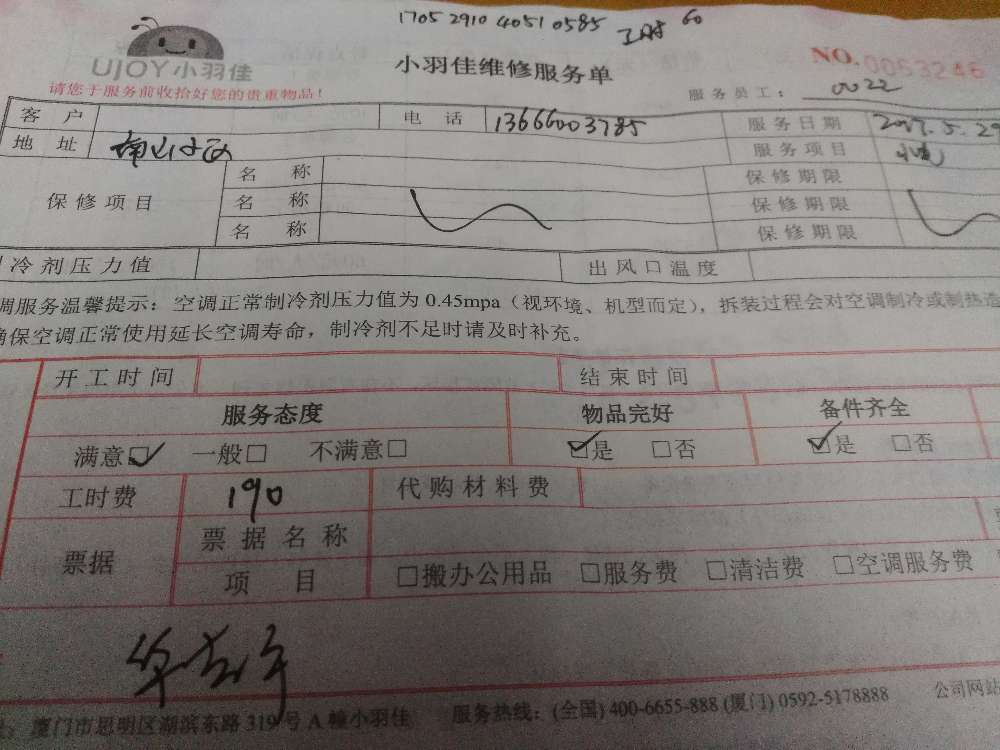 1705 2910 4051 0585 工时 60
UJOY小羽佳
小羽佳维修服务单
NO. 0053246
请您于服务前收拾好您的贵重物品！
服务员工： 0022
客户 电话 13666003785 服务日期 2017.5.29
地址 服务项目
保修项目 名称 保修期限
名称 保修期限
名称 保修期限
冷剂压力值 出风口温度
调服务温馨提示：空调正常制冷剂压力值为 0.45mpa（视环境、机型而定），拆装过程会对空调制冷或制热造
确保空调正常使用延长空调寿命，制冷剂不足时请及时补充。
开工时间 结束时间
服务态度 物品完好 备件齐全
满意☑ 一般□ 不满意□ ☑是 □否 ☑是 □否
工时费 190 代购材料费
票据 票据名称
项目 □搬办公用品 □服务费 □清洁费 □空调服务费
厦门市思明区湖滨东路 319 号 A 幢小羽佳 服务热线：(全国) 400-6655-888 (厦门) 0592-5178888 公司网站